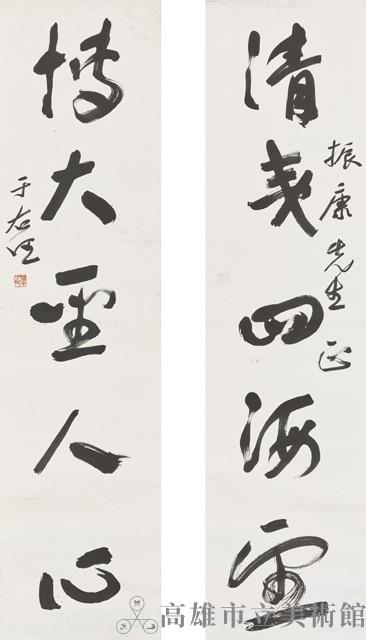 清夷四海
振康先生正
博大聖人心
于右任
高雄市立美術館